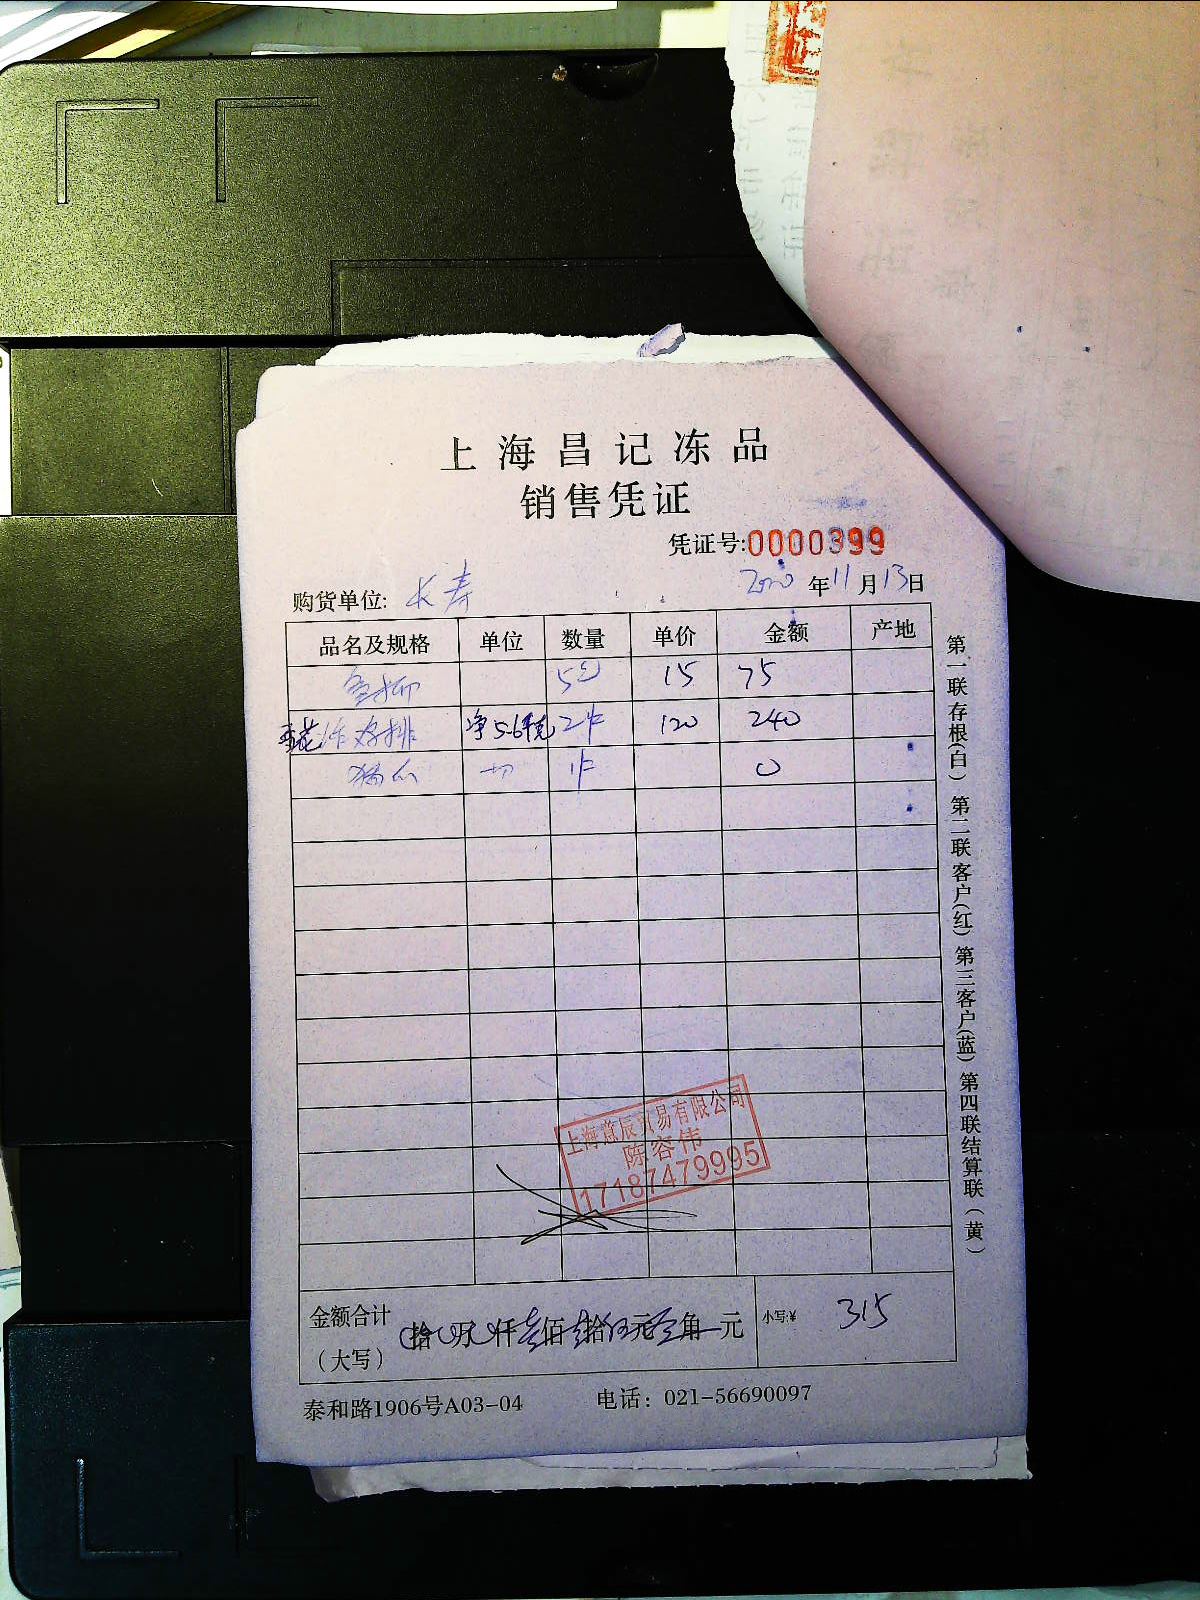 上海昌记冻品
销售凭证
凭证号:0000399
购货单位: 长寿 2020年11月13日
品名及规格 单位 数量 单价 金额 产地
5包 15 75
排 净5-6千克 2件 120 240
1件 0
上海 辰贸易有限公司
陈容伟
17187479995
金额合计 拾 万 仟叁佰壹拾伍元 角 元 小写:¥ 315
(大写)
泰和路1906号A03-04 电话: 021-56690097
第一联存根(白) 第二联客户(红) 第三客户(蓝) 第四联结算联(黄)